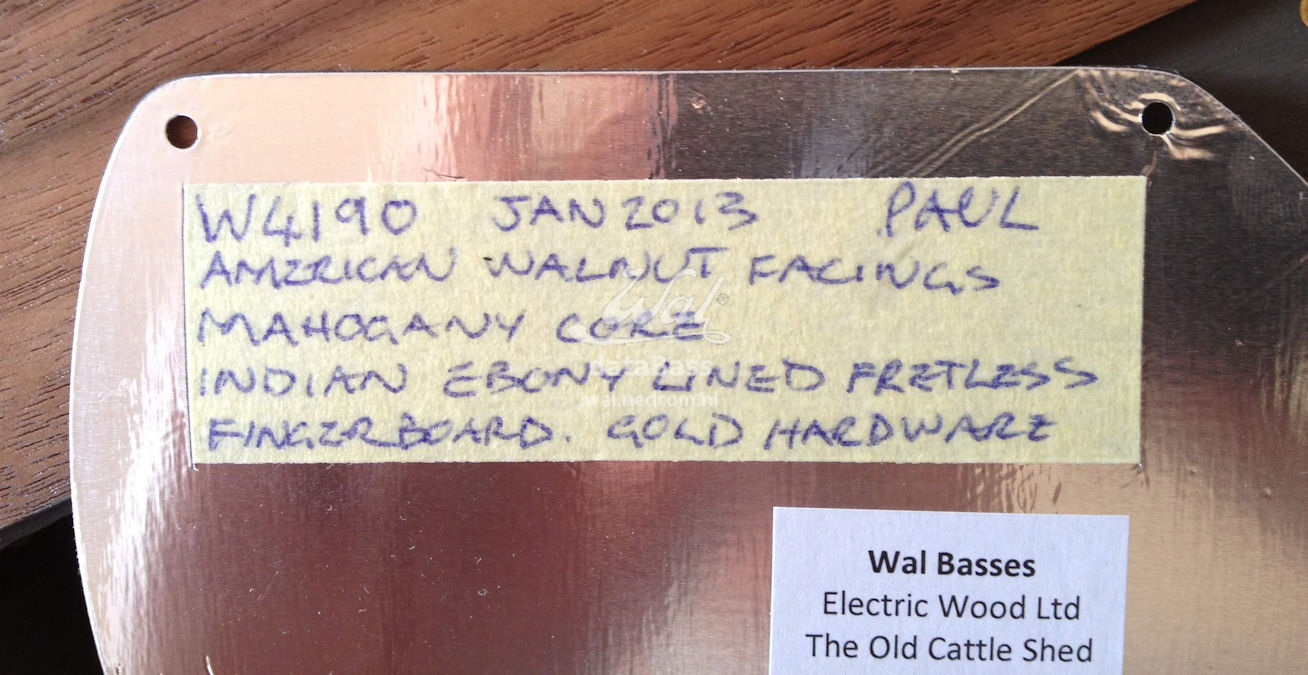 W4190 JAN 2013 PAUL
AMERICAN WALNUT FACINGS
MAHOGANY CORE
INDIAN EBONY LINED FRETLESS
FINGERBOARD. GOLD HARDWARE
Wal®
DataBass
wal.nedcom.nl
Wal Basses
Electric Wood Ltd
The Old Cattle Shed